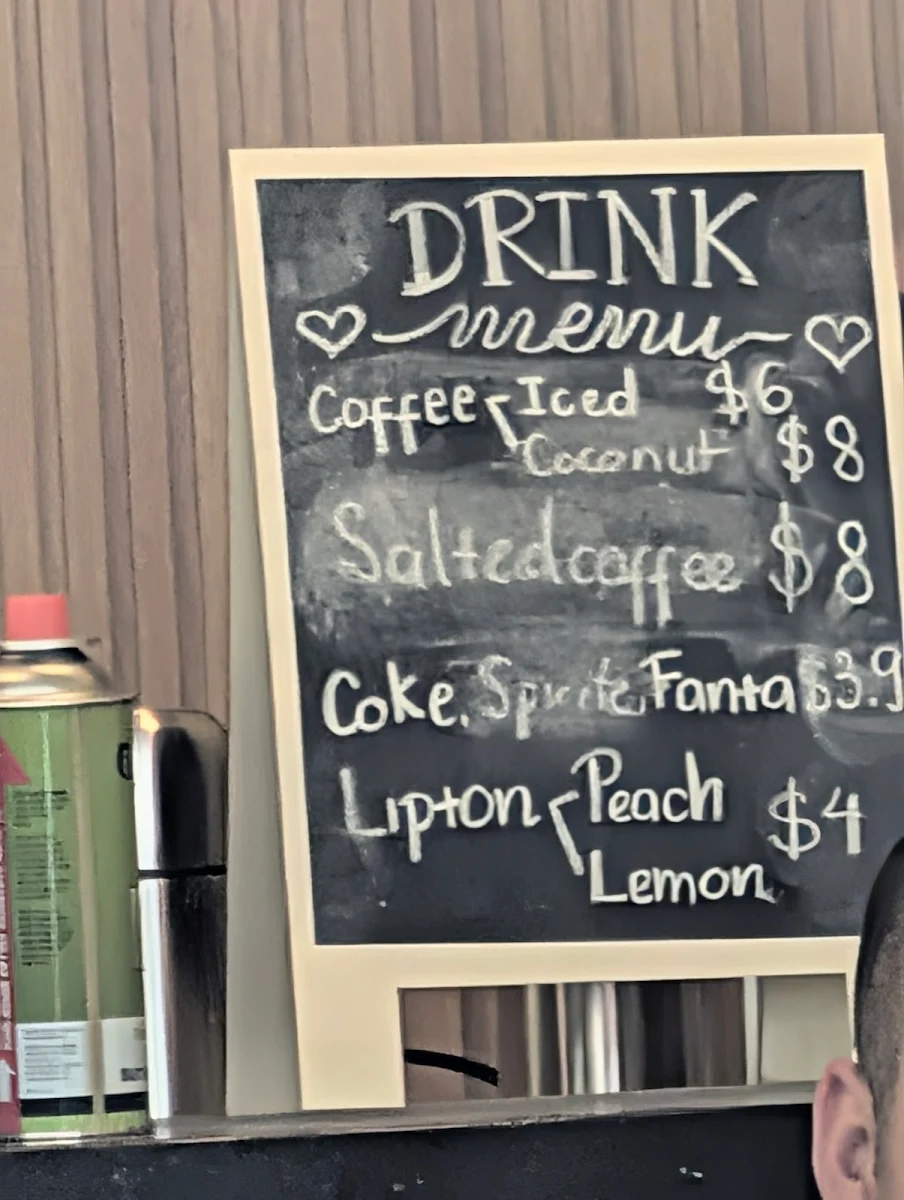 DRINK
menu
Coffee Iced $6
Coconut $8
Salted coffee $8
Coke, Sprite, Fanta $3.9
Lipton Peach $4
Lemon